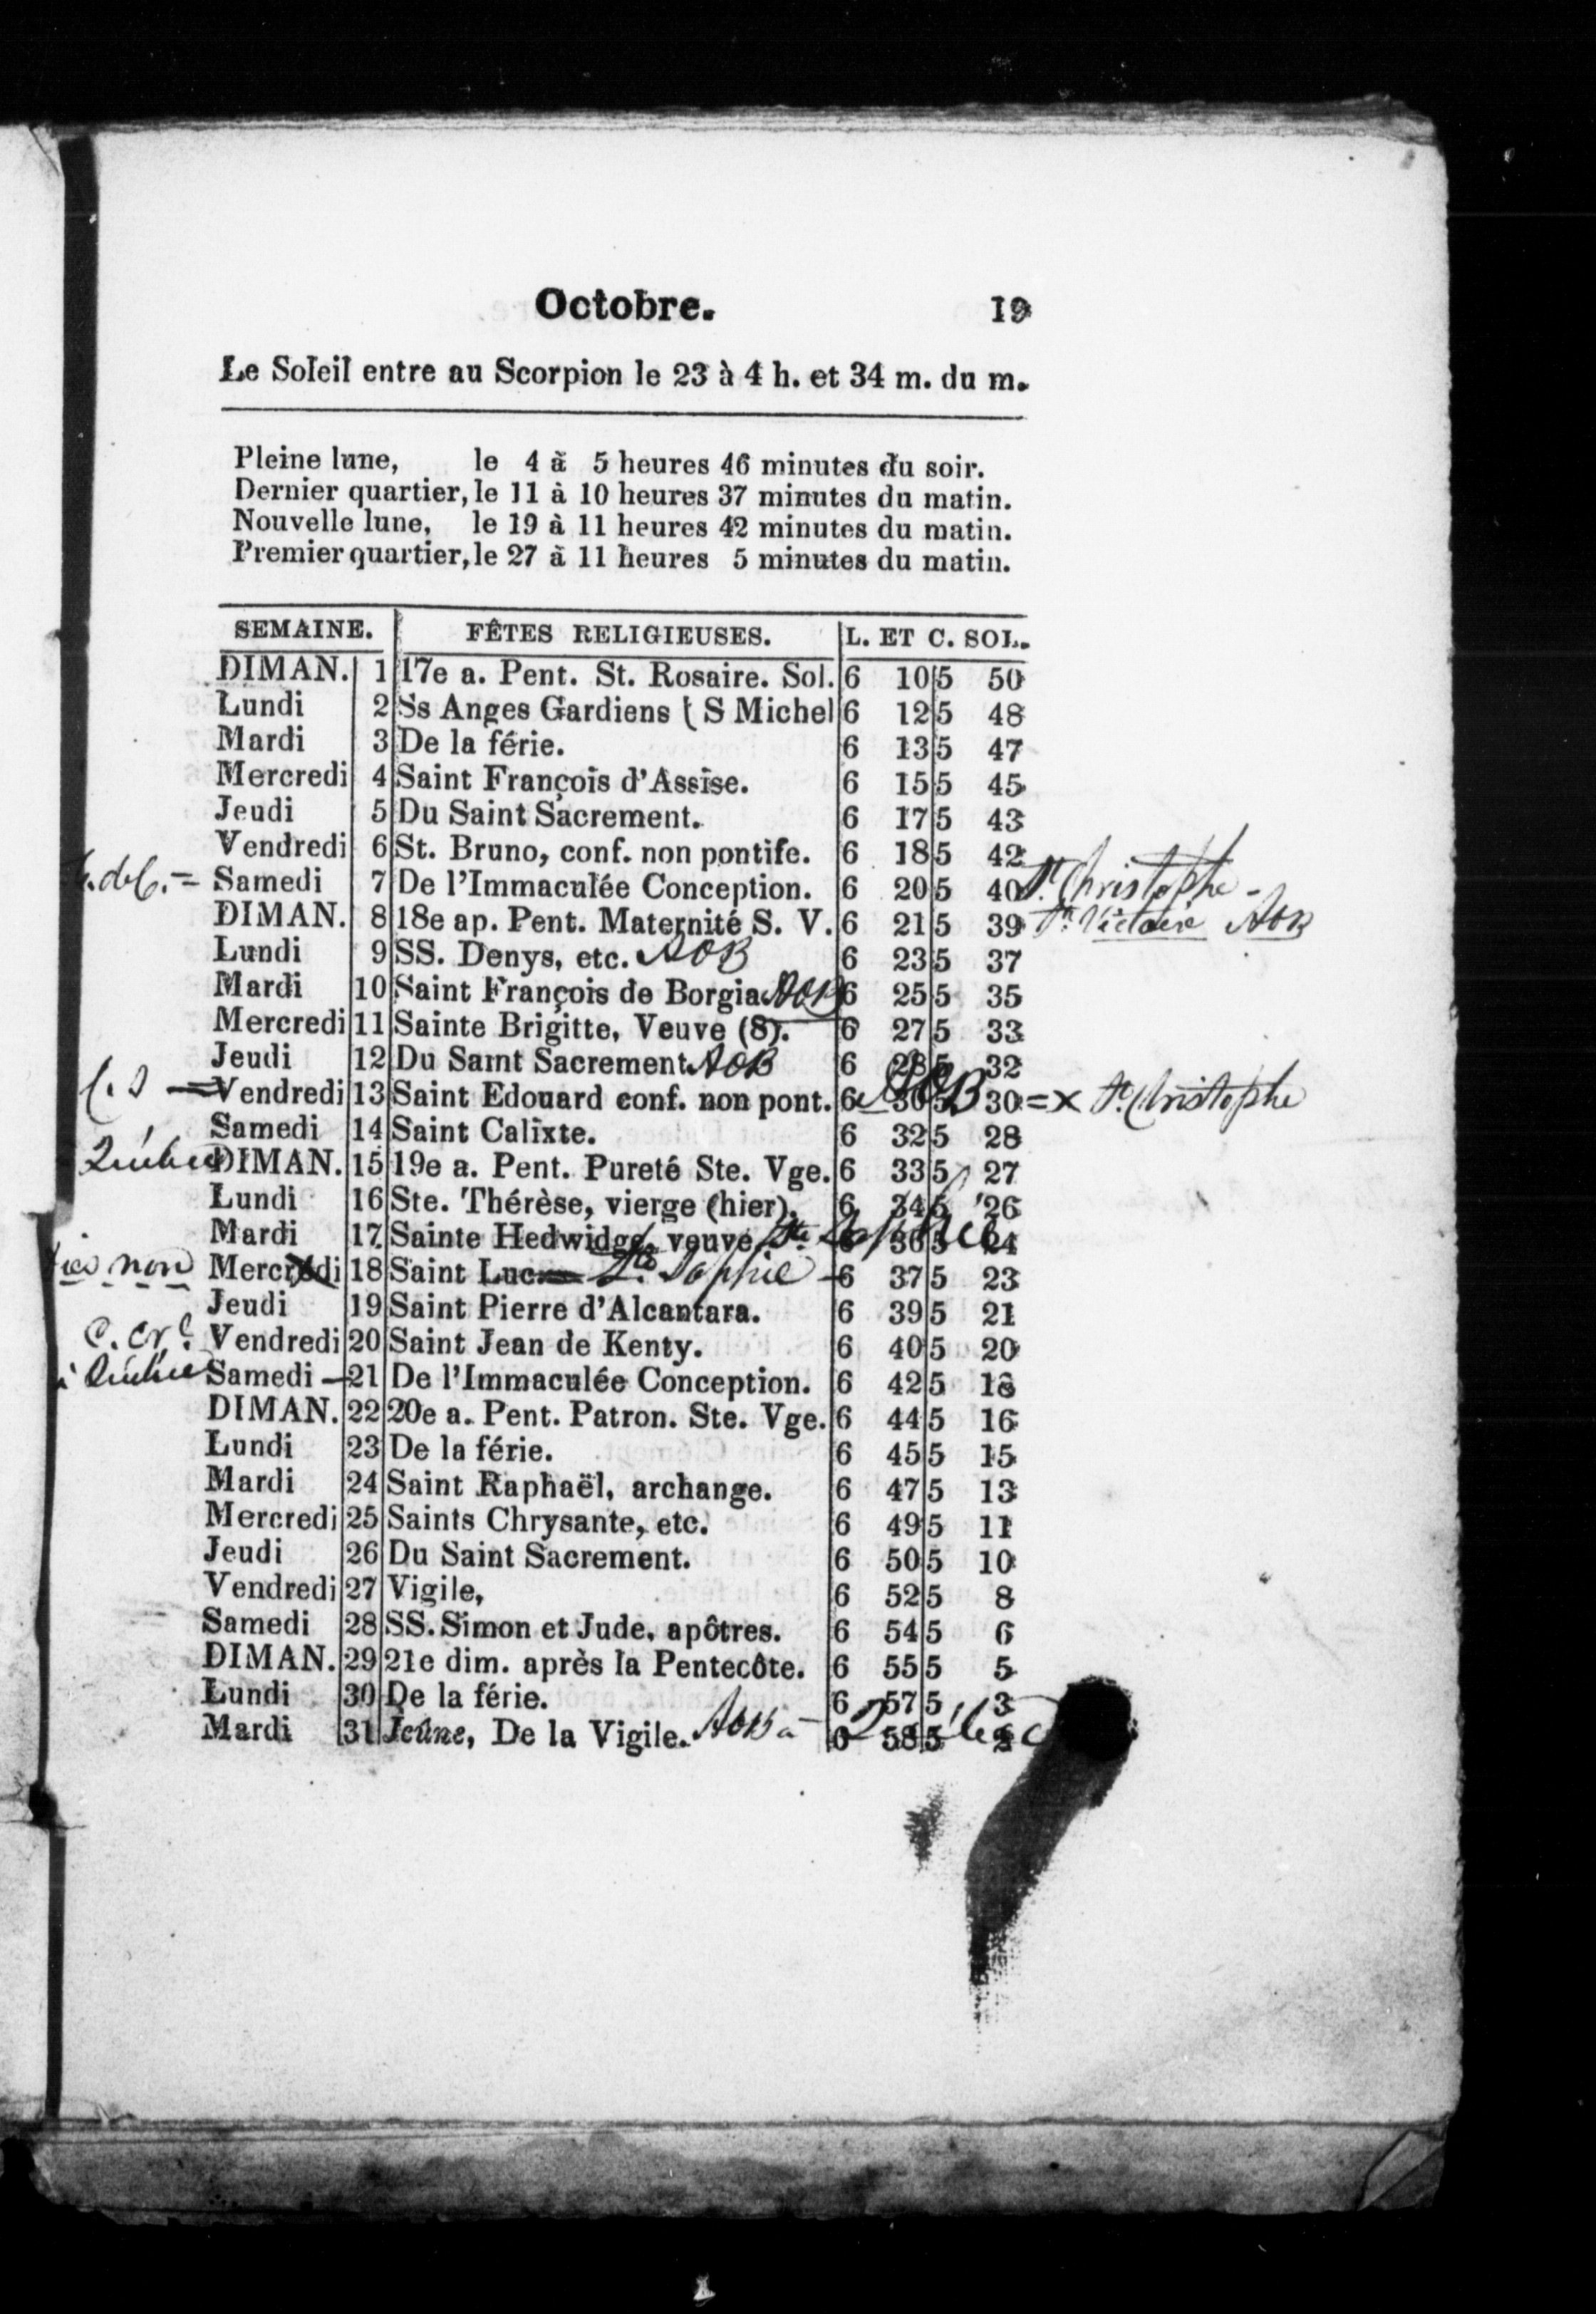 Octobre. 19
Le Soleil entre au Scorpion le 23 à 4 h. et 34 m. du m.
Pleine lune, le 4 à 5 heures 46 minutes du soir.
Dernier quartier, le 11 à 10 heures 37 minutes du matin.
Nouvelle lune, le 19 à 11 heures 42 minutes du matin.
Premier quartier, le 27 à 11 heures 5 minutes du matin.
SEMAINE. FÊTES RELIGIEUSES. L. ET C. SOL.
DIMAN. 1 17e a. Pent. St. Rosaire. Sol. 6 10 5 50
Lundi 2 Ss Anges Gardiens ( S Michel 6 12 5 48
Mardi 3 De la férie. 6 13 5 47
Mercredi 4 Saint François d'Assise. 6 15 5 45
Jeudi 5 Du Saint Sacrement. 6 17 5 43
Vendredi 6 St. Bruno, conf. non pontife. 6 18 5 42
Samedi 7 De l'Immaculée Conception. 6 20 5 40 St. Christophe -
DIMAN. 8 18e ap. Pent. Maternité S. V. 6 21 5 39 St. Victoire AOB
Lundi 9 SS. Denys, etc. AOB 6 23 5 37
Mardi 10 Saint François de Borgia AOB 6 25 5 35
Mercredi 11 Sainte Brigitte, Veuve (8). 6 27 5 33
Jeudi 12 Du Saint Sacrement AOB 6 28 5 32
Vendredi 13 Saint Edouard conf. non pont. 6 30 5 AOB 30 = x St. Christophe
Samedi 14 Saint Calixte. 6 32 5 28
Québec DIMAN. 15 19e a. Pent. Pureté Ste. Vge. 6 33 5 27
Lundi 16 Ste. Thérèse, vierge (hier). 6 34 5 26
Mardi 17 Sainte Hedwidge, veuve Ste Sophie 6 36 5 24
non Mercredi 18 Saint Luc. Ste. Sophie - 6 37 5 23
Jeudi 19 Saint Pierre d'Alcantara. 6 39 5 21
Vendredi 20 Saint Jean de Kenty. 6 40 5 20
à Québec Samedi - 21 De l'Immaculée Conception. 6 42 5 18
DIMAN. 22 20e a. Pent. Patron. Ste. Vge. 6 44 5 16
Lundi 23 De la férie. 6 45 5 15
Mardi 24 Saint Raphaël, archange. 6 47 5 13
Mercredi 25 Saints Chrysante, etc. 6 49 5 11
Jeudi 26 Du Saint Sacrement. 6 50 5 10
Vendredi 27 Vigile, 6 52 5 8
Samedi 28 SS. Simon et Jude, apôtres. 6 54 5 6
DIMAN. 29 21e dim. après la Pentecôte. 6 55 5 5
Lundi 30 De la férie. 6 57 5 3
Mardi 31 Jeûne, De la Vigile. AOB à Québec 6 58 5 2